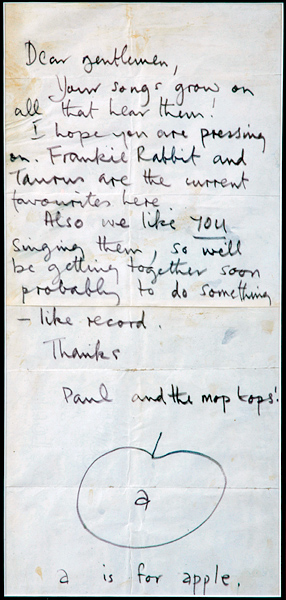 Dear gentlemen,
Your songs grow on
all that hear them!
I hope you are pressing
on. Frankie Rabbit and
Taurus are the current
favourites here
Also we like YOU
singing them, so we'll
be getting together soon
probably to do something
– like record.
Thanks
Paul and the mop tops!
a
a is for apple.